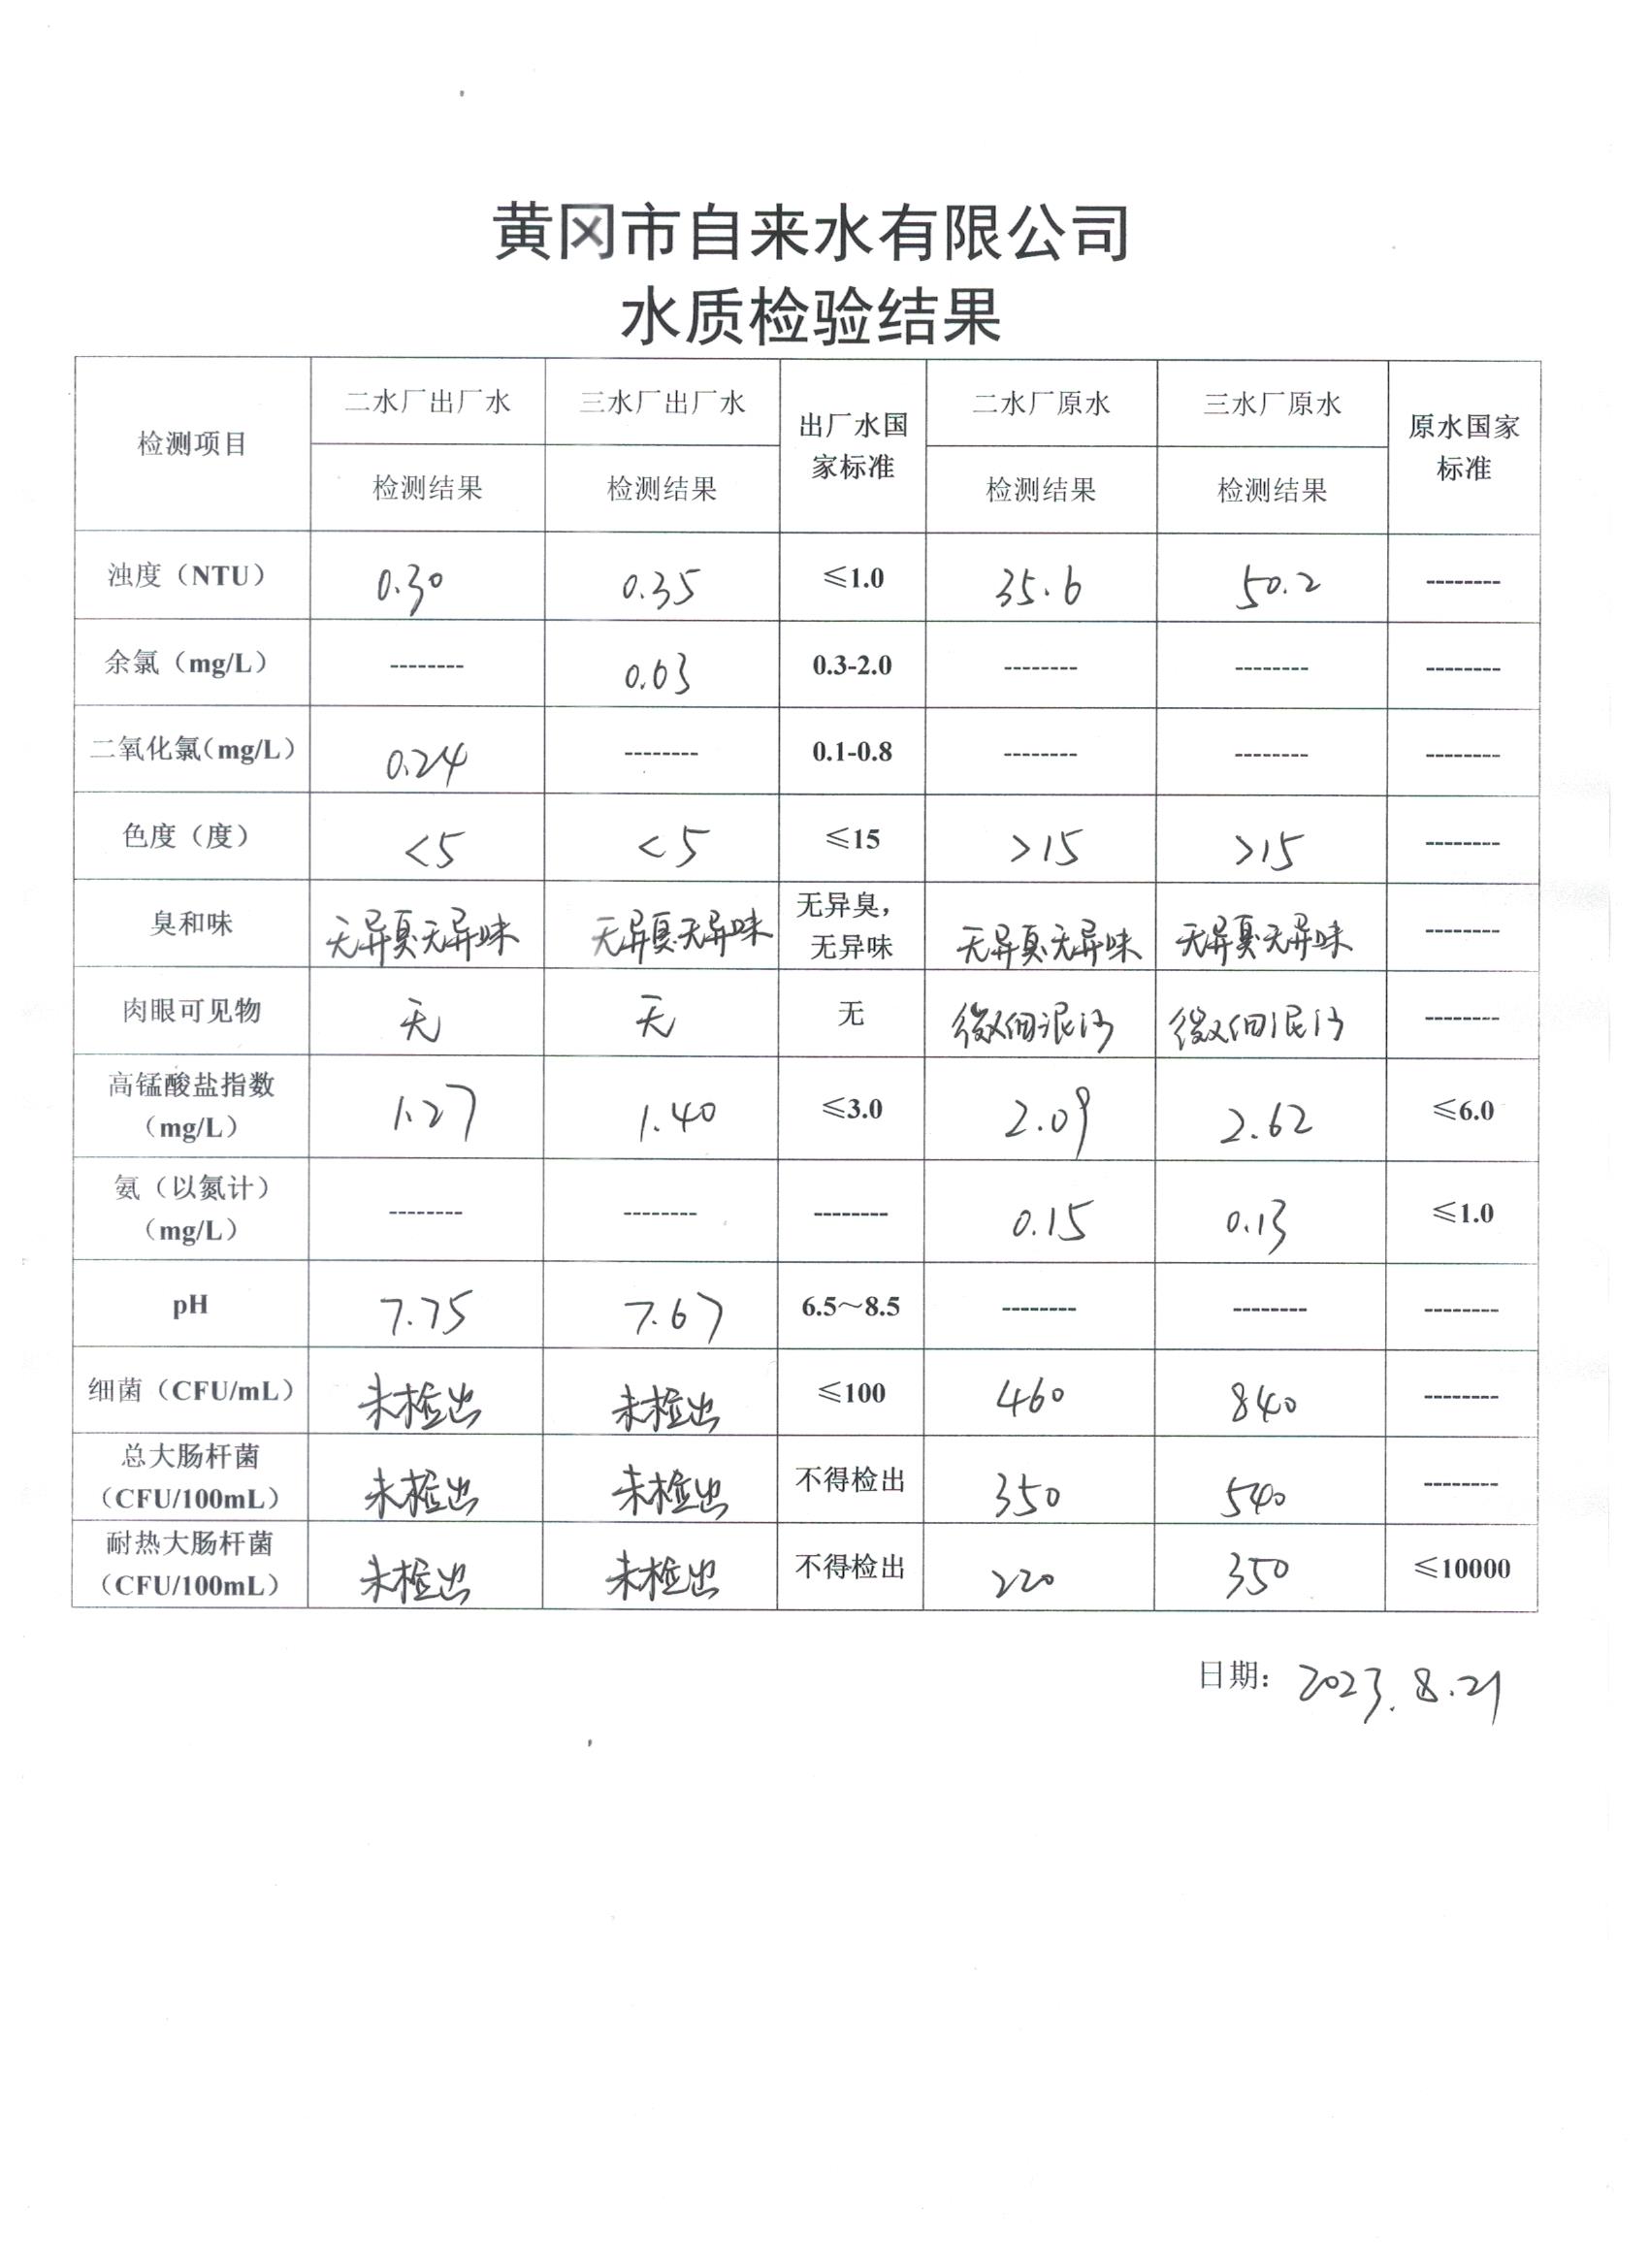 黄冈市自来水有限公司
水质检验结果
检测项目 二水厂出厂水 三水厂出厂水 出厂水国家标准 二水厂原水 三水厂原水 原水国家标准
检测结果 检测结果 检测结果 检测结果
浊度（NTU） 0.30 0.35 ≤1.0 35.6 50.2 --------
余氯（mg/L） -------- 0.63 0.3-2.0 -------- -------- --------
二氧化氯（mg/L） 0.24 -------- 0.1-0.8 -------- -------- --------
色度（度） <5 <5 ≤15 >15 >15 --------
臭和味 无异臭.无异味 无异臭.无异味 无异臭，无异味 无异臭.无异味 无异臭.无异味 --------
肉眼可见物 无 无 无 微细泥沙 微细泥沙 --------
高锰酸盐指数（mg/L） 1.27 1.40 ≤3.0 2.09 2.62 ≤6.0
氨（以氮计）（mg/L） -------- -------- -------- 0.15 0.13 ≤1.0
pH 7.75 7.67 6.5～8.5 -------- -------- --------
细菌（CFU/mL） 未检出 未检出 ≤100 460 840 --------
总大肠杆菌（CFU/100mL） 未检出 未检出 不得检出 350 540 --------
耐热大肠杆菌（CFU/100mL） 未检出 未检出 不得检出 220 350 ≤10000
日期： 2023.8.21